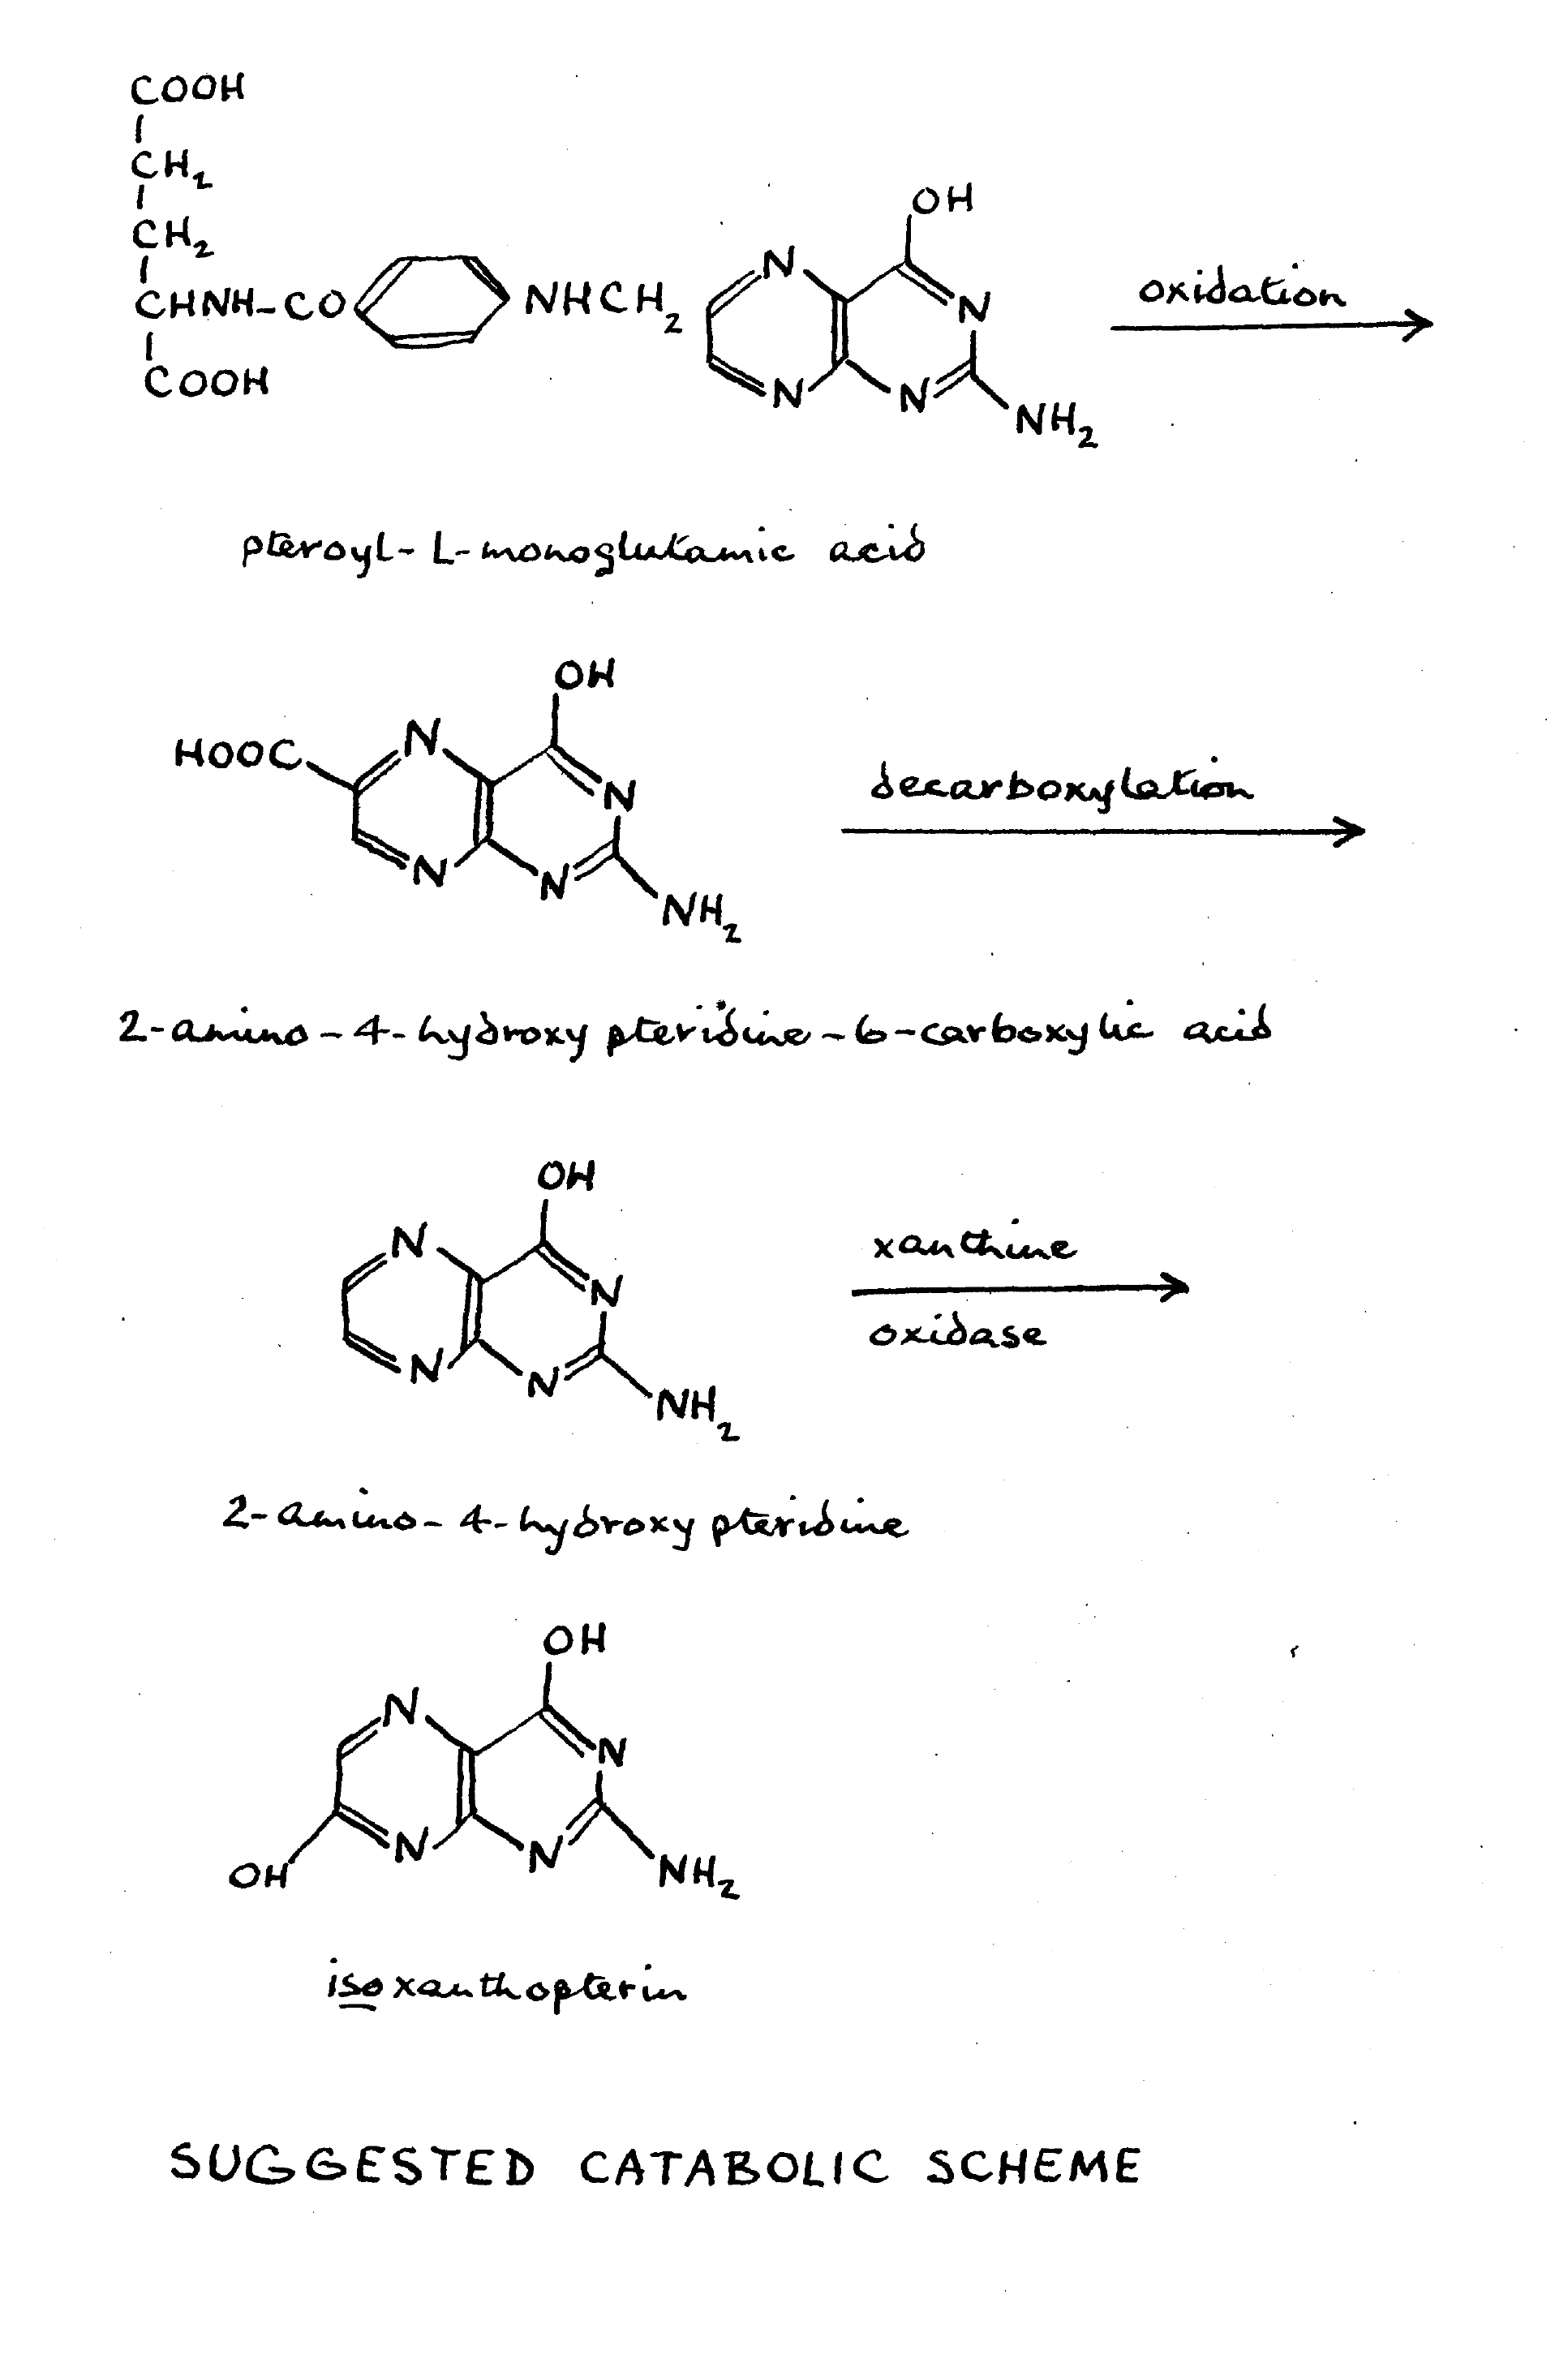 COOH
CH2
CH2
CHNH-CO NHCH2
COOH
N
OH
N
N
N
NH2
oxidation
pteroyl-L-monoglutamic acid
OH
HOOC
N
N
N
N
NH2
decarboxylation
2-amino-4-hydroxy pteridine-6-carboxylic acid
OH
N
N
N
N
NH2
xanthine
oxidase
2-amino-4-hydroxy pteridine
OH
N
N
N
N
OH
NH2
isoxanthopterin
SUGGESTED CATABOLIC SCHEME